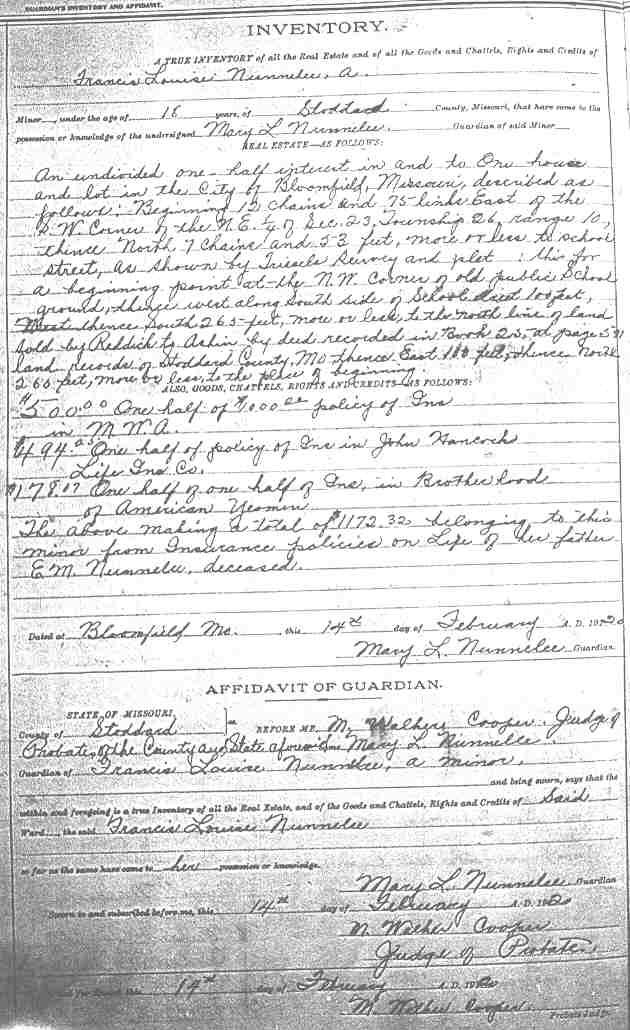 GUARDIAN'S INVENTORY AND AFFIDAVIT.
INVENTORY.
A TRUE INVENTORY of all the Real Estate and of all the Goods and Chattels, Rights and Credits of
Francis Louise Nunnelee, a
Minor, under the age of 18 years, of Stoddard County, Missouri, that have come to the
possession or knowledge of the undersigned Mary L Nunnelee Guardian of said Minor
REAL ESTATE—AS FOLLOWS:
An undivided one-half interest in and to One house
and lot in the City of Bloomfield, Missouri, described as
follows: Beginning 12 chains and 75 links East of the
S.W. Corner of the N.E. ¼ of Sec. 23, Township 26, range 10,
thence North 7 chains and 53 feet, more or less to school
street, as shown by Survey and plot : this for
a beginning point at the N.W. Corner of old public School
ground, thence west along South side of School street 100 feet,
thence South 265 feet, more or less, to the north line of land
sold by Reddick to by deed recorded in Book 25, at page
land records of Stoddard County, Mo thence East 100 feet, thence North
260 feet, more or less, to the place of beginning.
ALSO, GOODS, CHATTELS, RIGHTS AND CREDITS—AS FOLLOWS:
$500.00 One half of $1000.00 policy of Ins
in M.W.A.
$494. One half of policy of Ins in John Hancock
Life Ins. Co.
$178.07 One half of one half of Ins, in Brotherhood
of American Yeomen
The above making a total of $1172.32 belonging to this
minor from Insurance policies on Life of her father
E M. Nunnelee, deceased.
Dated at Bloomfield Mo. , this 14th day of February A. D. 1920
Mary L. Nunnelee Guardian
AFFIDAVIT OF GUARDIAN.
STATE OF MISSOURI,
County of Stoddard } ss BEFORE ME, M. Walker Cooper. Judge of
Probate, of the County and State aforesaid Mary L. Nunnelee
Guardian of Francis Louise Nunnelee, a minor,
and being sworn, says that the
within and foregoing is a true Inventory of all the Real Estate, and of the Goods and Chattels, Rights and Credits of Said
Ward, the said Francis Louise Nunnelee
so far as the same have come to her possession or knowledge.
Mary L. Nunnelee Guardian
Sworn to and subscribed before me, this 14th day of February A. D. 1920
M. Walker Cooper
Judge of Probate.
14th day of February A. D. 1920
M. Walker Cooper.
Probate Judge